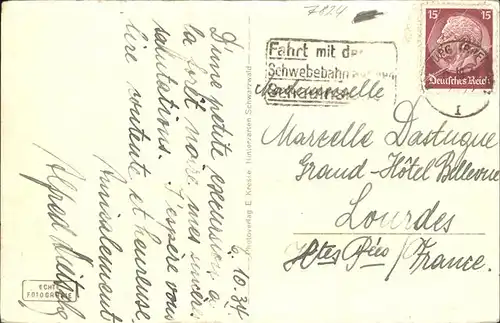 7824
Fahrt mit der
Schwebebahn
15 15
Deutsches Reich
I
Mademoiselle
Marcelle Dastugue
Grand-Hôtel Bellevue
Lourdes
Htes Pées / France.
6.10.34
D'une petite excursion à
la Forêt noire mes sincères
salutations. J'espère vous
lire contente et heureuse.
Amicalement
Alfred
Photoverlag E. Krepie, Hinterzarten Schwarzwald
ECHTE
FOTOGRAFIE